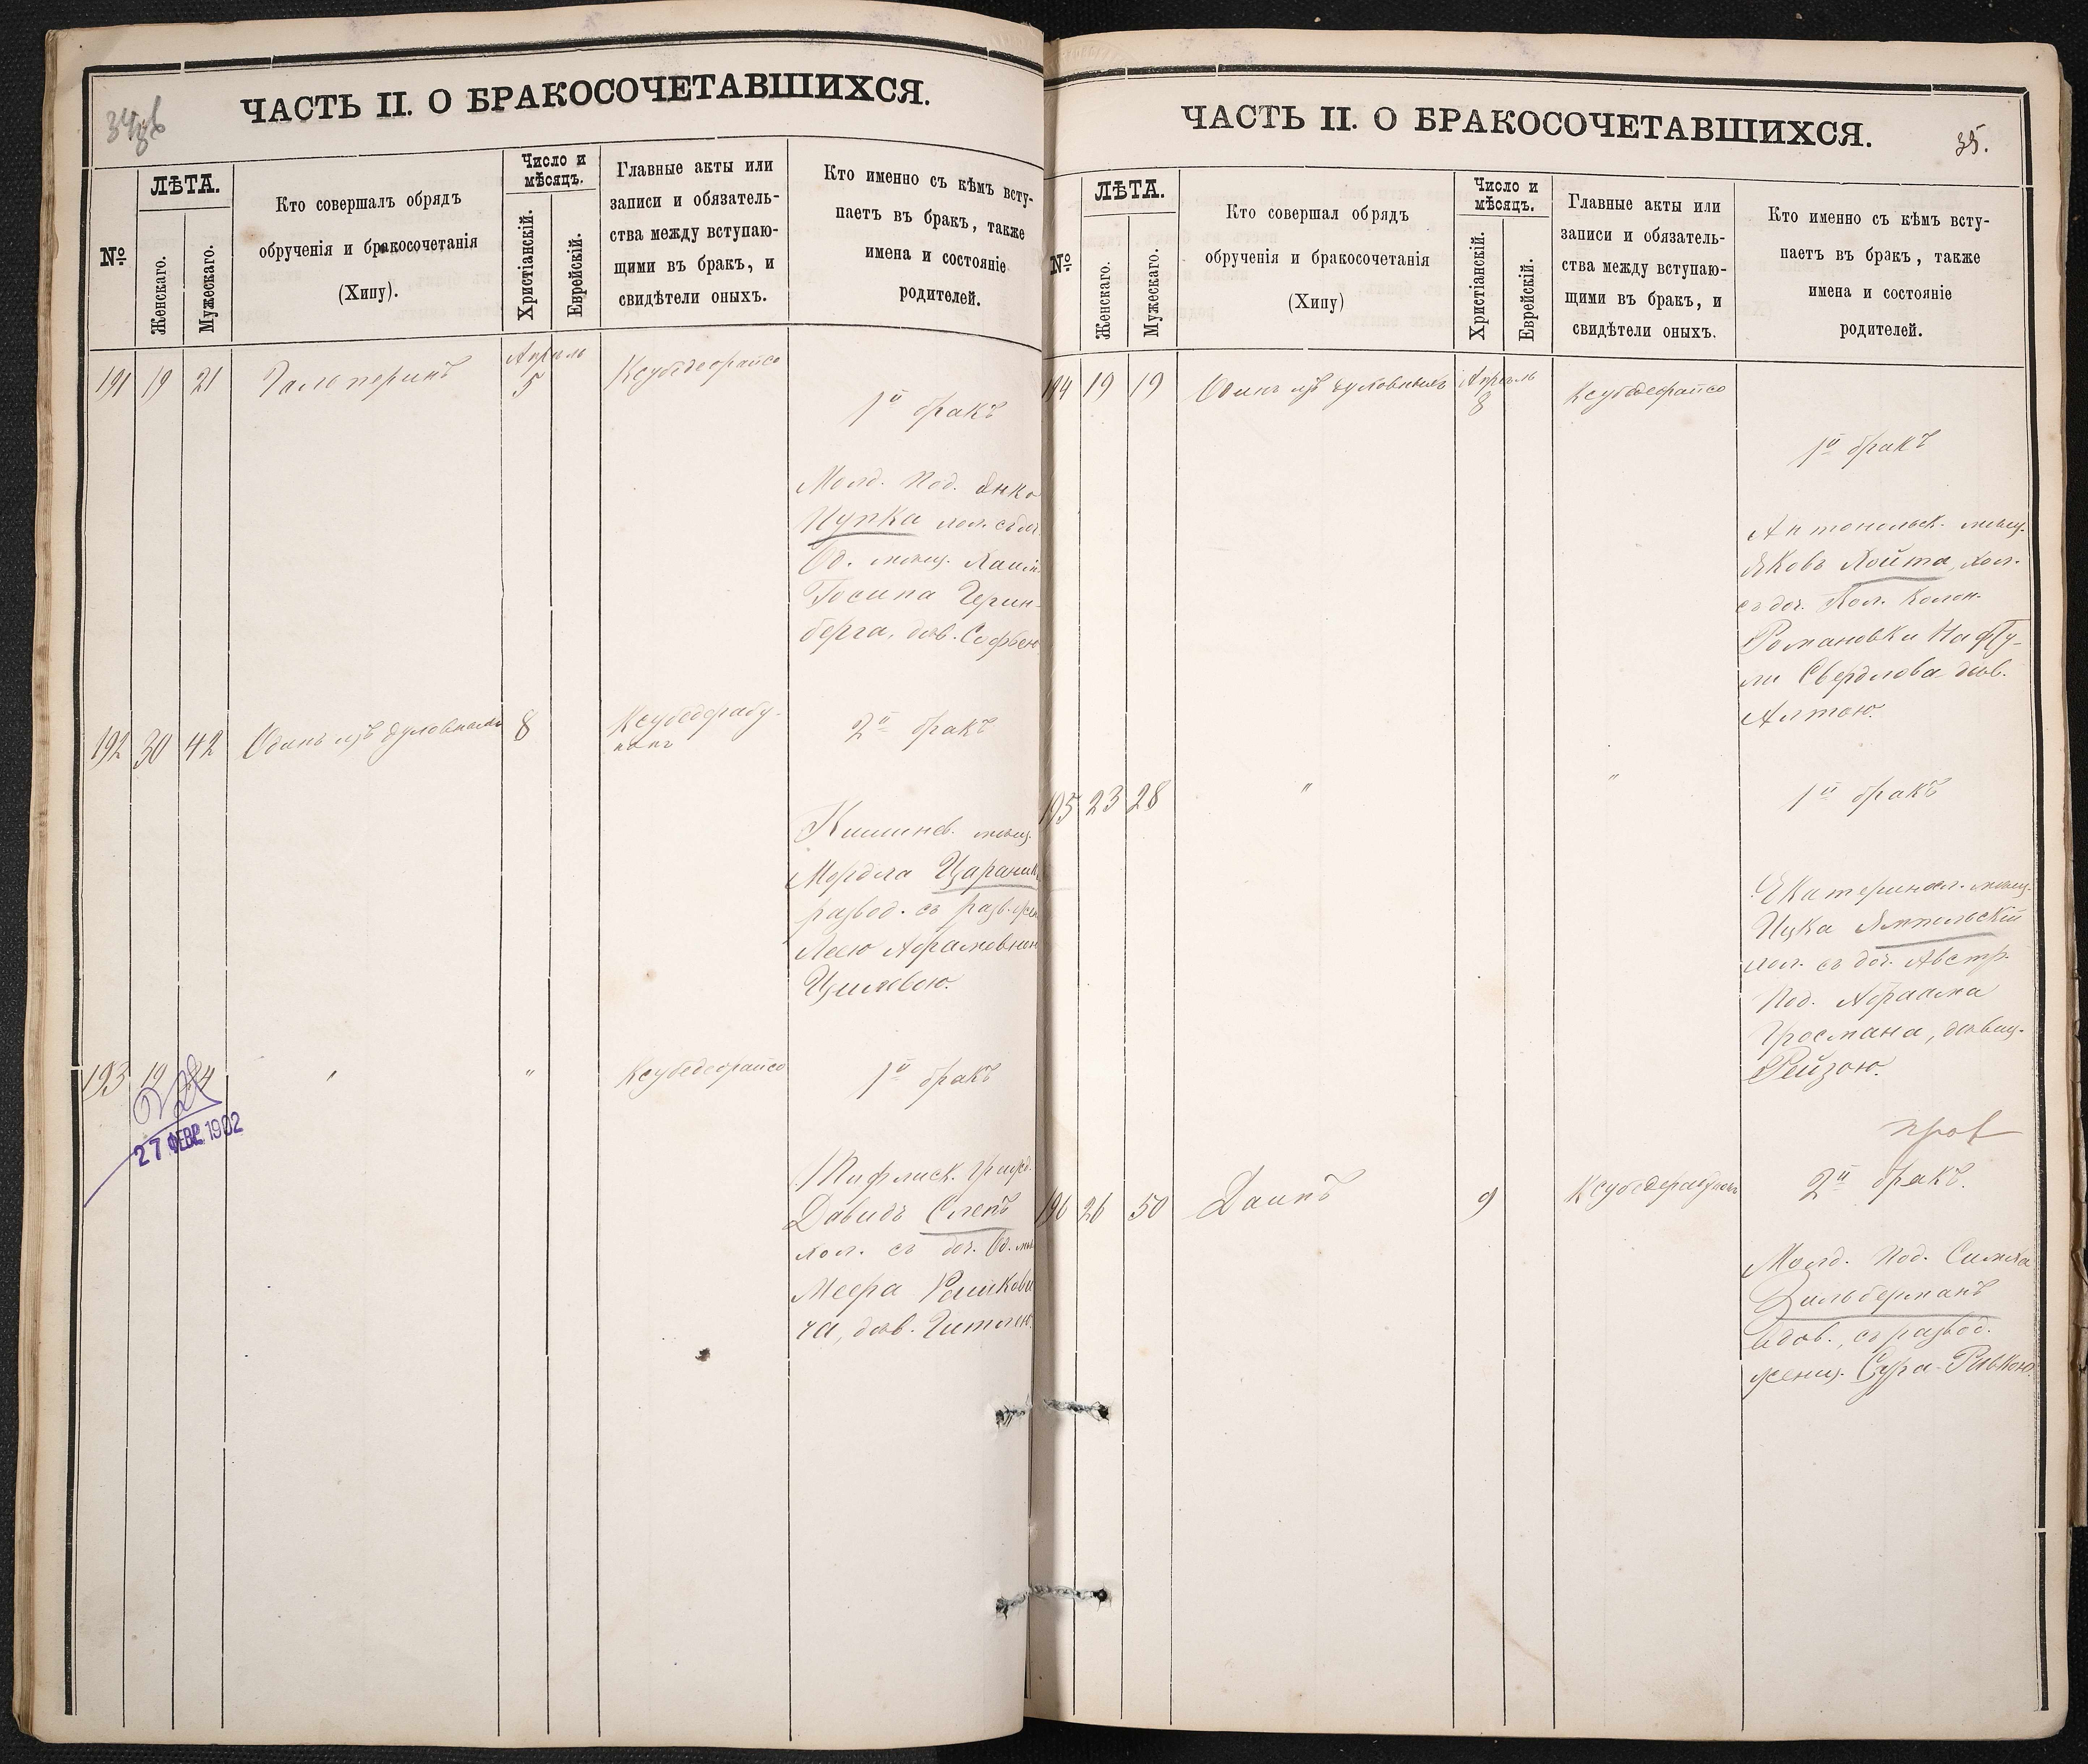 34об
ЧАСТЬ II. О БРАКОСОЧЕТАВШИХСЯ.
№
ЛѢТА.
Женскаго.
Мужескаго.
Кто совершалъ обрядъ
обрученія и бракосочетанія
(Хипу).
Число и
мѣсяцъ.
Христіанскій.
Еврейскій.
Главные акты или
записи и обязатель-
ства между вступаю-
щими въ бракъ, и
свидѣтели оныхъ.
Кто именно съ кѣмъ всту-
паетъ въ бракъ, также
имена и состояніе
родителей.
191 19 21 Гальперинъ Апрѣль 5 Ксубедефайсо
1й бракъ
Молд. Под. Янко
Цупка хол. съ доч.
Од. мѣщ. Хаим
Госипа Герин-
берга, дѣв. Софьею
192 30 42 Одинъ изъ духовныхъ 8
2й бракъ
Кишинев. мѣщ.
Мордха Цараник
развод. съ разв. жен
Леею Абрамовною
193 19 24 " " Ксубедефайсо
1й бракъ
27 ФЕВР. 1902
Тифлиск. гражд.
Давидъ Слепъ
хол. съ доч. Од. мѣ
Меера Рашкови
ча, дѣв. Гитлею.
ЧАСТЬ II. О БРАКОСОЧЕТАВШИХСЯ.
35.
№
ЛѢТА.
Женскаго.
Мужескаго.
Кто совершал обрядъ
обрученія и бракосочетанія
(Хипу)
Число и
мѣсяцъ.
Христіанскій.
Еврейскій.
Главные акты или
записи и обязатель-
ства между вступаю-
щими въ бракъ, и
свидѣтели оныхъ.
Кто именно съ кѣмъ всту-
паетъ въ бракъ, также
имена и состояніе
родителей.
194 19 19 Одинъ изъ духовныхъ Апрѣль 8 Ксубедефайсо
1й бракъ
Антопольск. мѣщ.
Яковъ Хойта, хол.
съ доч. Хол. колон.
Романовки Нафту-
ли Свердлова дѣв.
Алтою.
195 23 28 " "
1й бракъ
Екатериносл. мѣщ.
Ицка Ямпольскій
хол. съ доч. Австр.
Под. Абраама
Гросмана, дѣвиц.
Рейзою.
пров
196 26 50 Даинъ 9
2й бракъ.
Молд. Под. Симха
Зильберманъ
вдов., съ развод.
женщ. Сура-Ривкою.